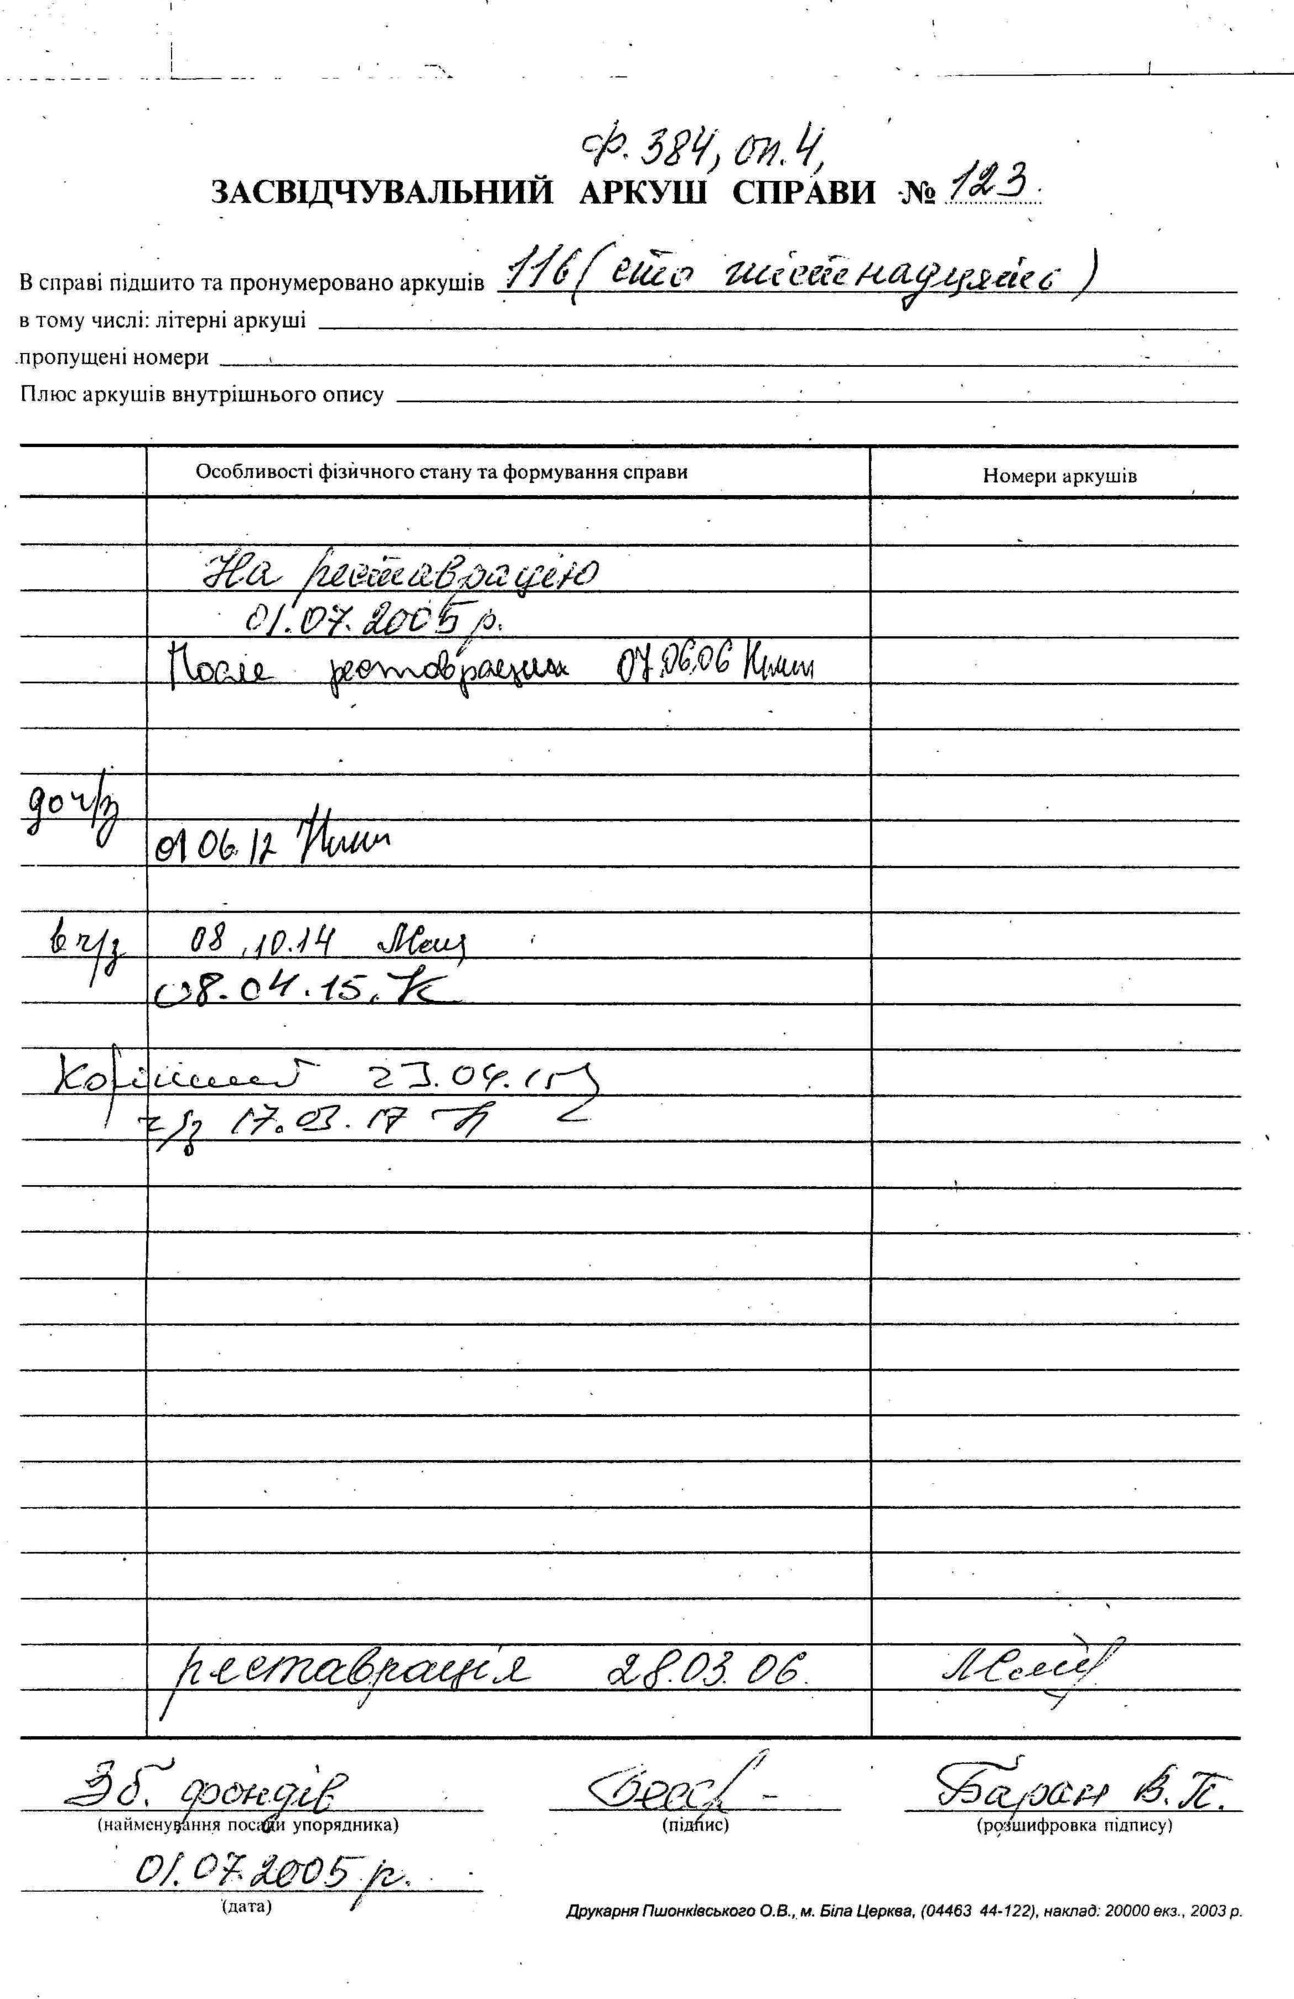 Ф. 384, оп. 4,
ЗАСВІДЧУВАЛЬНИЙ АРКУШ СПРАВИ № 123
В справі підшито та пронумеровано аркушів 116 (сто шістнадцять)
в тому числі: літерні аркуші
пропущені номери
Плюс аркушів внутрішнього опису
Особливості фізичного стану та формування справи Номери аркушів
На реставрацію
01.07.2005 р.
После реставрации 07.06.06
до ч/з
01 06.12
в ч/з 08.10.14
08.04.15. К
23.04.15
ч/з 17.03.17
реставрація 28.03.06.
Зб. фондів Баран В. П.
(найменування посади упорядника) (підпис) (розшифровка підпису)
01.07.2005 р.
(дата)
Друкарня Пшонківського О.В., м. Біла Церква, (04463 44-122), наклад: 20000 екз., 2003 р.